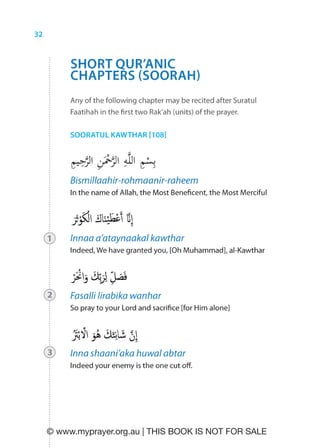 32
SHORT QUR'ANIC
CHAPTERS (SOORAH)
Any of the following chapter may be recited after Suratul
Faatihah in the first two Rak'ah (units) of the prayer.
SOORATUL KAWTHAR [108]
بِسْمِ اللَّهِ الرَّحْمَٰنِ الرَّحِيمِ
Bismillaahir-rohmaanir-raheem
In the name of Allah, the Most Beneficent, the Most Merciful
إِنَّا أَعْطَيْنَاكَ الْكَوْثَرَ
1 Innaa a'ataynaakal kawthar
Indeed, We have granted you, [Oh Muhammad], al-Kawthar
فَصَلِّ لِرَبِّكَ وَانْحَرْ
2 Fasalli lirabika wanhar
So pray to your Lord and sacrifice [for Him alone]
إِنَّ شَانِئَكَ هُوَ الْأَبْتَرُ
3 Inna shaani'aka huwal abtar
Indeed your enemy is the one cut off.
© www.myprayer.org.au | THIS BOOK IS NOT FOR SALE